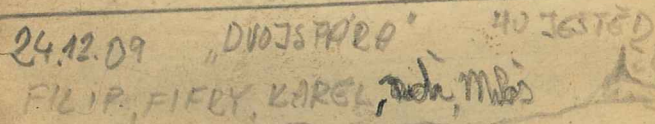 24.12.09 „DVOJSPÁRA" HO JEŠTĚD
FILIP, FIFRY, KAREL, Miloš